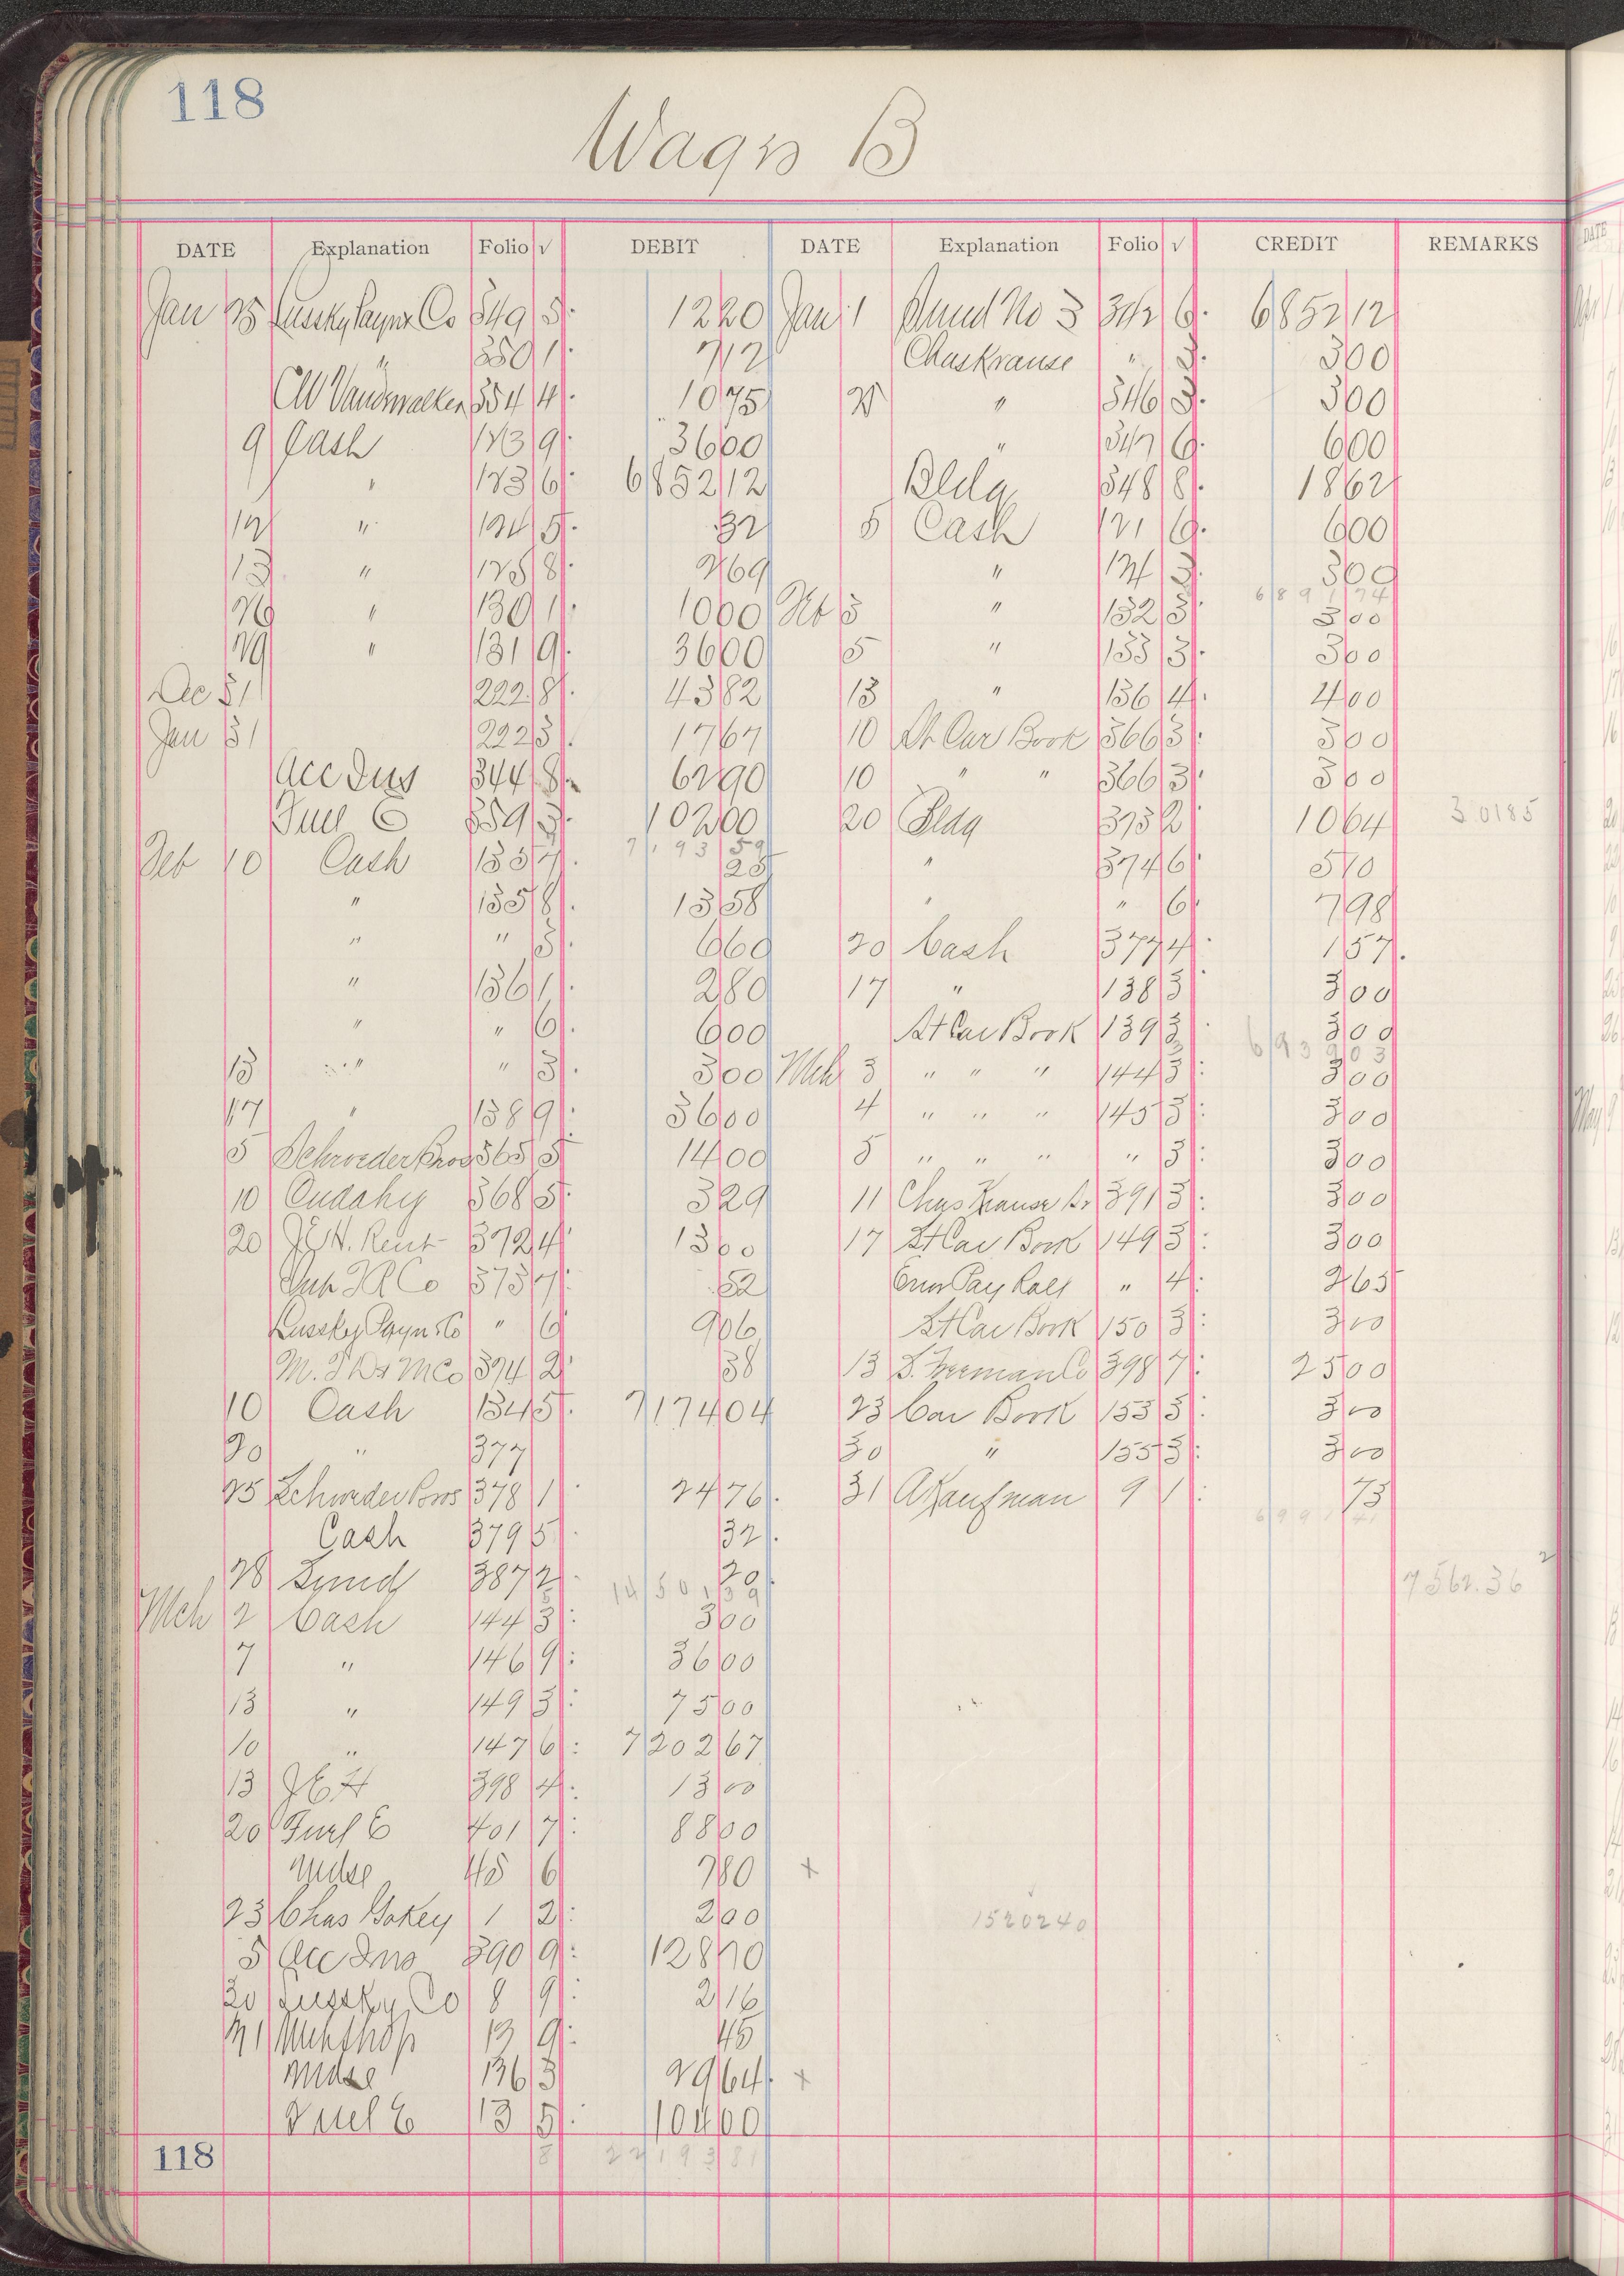 118
Wagn B
DATE Explanation Folio √ DEBIT DATE Explanation Folio √ CREDIT REMARKS
Jan 25 Lussky Payn Co 349 5 12 20 Jan 1 No 3 342 6 6852 12
" 350 1 7 12 Chas Krause " 3 3 00
CW Vanderwalker 354 4 10 75 2 " 346 3 3 00
9 Cash 123 9 36 00 " 347 6 6 00
" 123 6 6852 12 Bldg 348 8 18 62
12 " 124 5 32 5 Cash 121 6 6 00
13 " 125 8 2 69 " 124 3 3 00
6891 74
26 " 130 1 10 00 Feb 3 " 132 3 3 00
29 " 131 9 36 00 5 " 133 3 3 00
Dec 31 222 8 43 82 13 " 136 4 4 00
Jan 31 222 3 17 67 10 St Car Book 366 3 3 00
Acc Ins 344 8 62 90 10 " " 366 3 3 00
Fuel E 359 3 102 00 20 Bldg 373 2 10 64 30185
7193 59
Feb 10 Cash 135 7 25 " 374 6 5 70
" 135 8 13 58 " " 6 7 98
" " 3 6 60 20 Cash 377 4 1 57
" 136 1 2 80 17 " 138 3 3 00
" " 6 6 00 St Car Book 139 3 3 00
6939 03
13 " " 3 3 00 Mch 3 " " " 144 3 3 00
17 " 138 9 36 00 4 " " " 145 3 3 00
5 Schroeder Bros 365 5 14 00 5 " " " " 3 3 00
10 Cudahy 368 5 3 29 11 Chas Krause Sr 391 3 3 00
20 J.E.H. Rent 372 4 13 00 17 St Car Book 149 3 3 00
373 7 52 Pay Roll " 4 2 65
Lussky Payn Co " 6 9 06 St Car Book 150 3 3 00
374 2 38 13 398 7 25 00
10 Cash 134 5 7174 04 23 Car Book 153 3 3 00
20 " 377 30 " 155 3 3 00
25 Schroeder Bros 378 1 24 76 31 A Kaufman 9 1 73
6991 41
Cash 379 5 32
28 387 2 20 7562.36
14501 39
Mch 2 Cash 144 3 3 00
7 " 146 9 36 00
13 " 149 3 75 00
10 " 147 6 7202 67
13 J E H 398 4 13 00
20 Fuel E 401 7 88 00
Mdse 45 6 7 80 x
23 Chas Gokey 1 2 2 00 15202 40
5 Acc Ins 390 9 128 70
20 Lussky Co 8 9 2 16
21 Mchshop 13 9 45
Mdse 136 3 29 64 x
Fuel E 13 5 104 00
118 8 22193 81